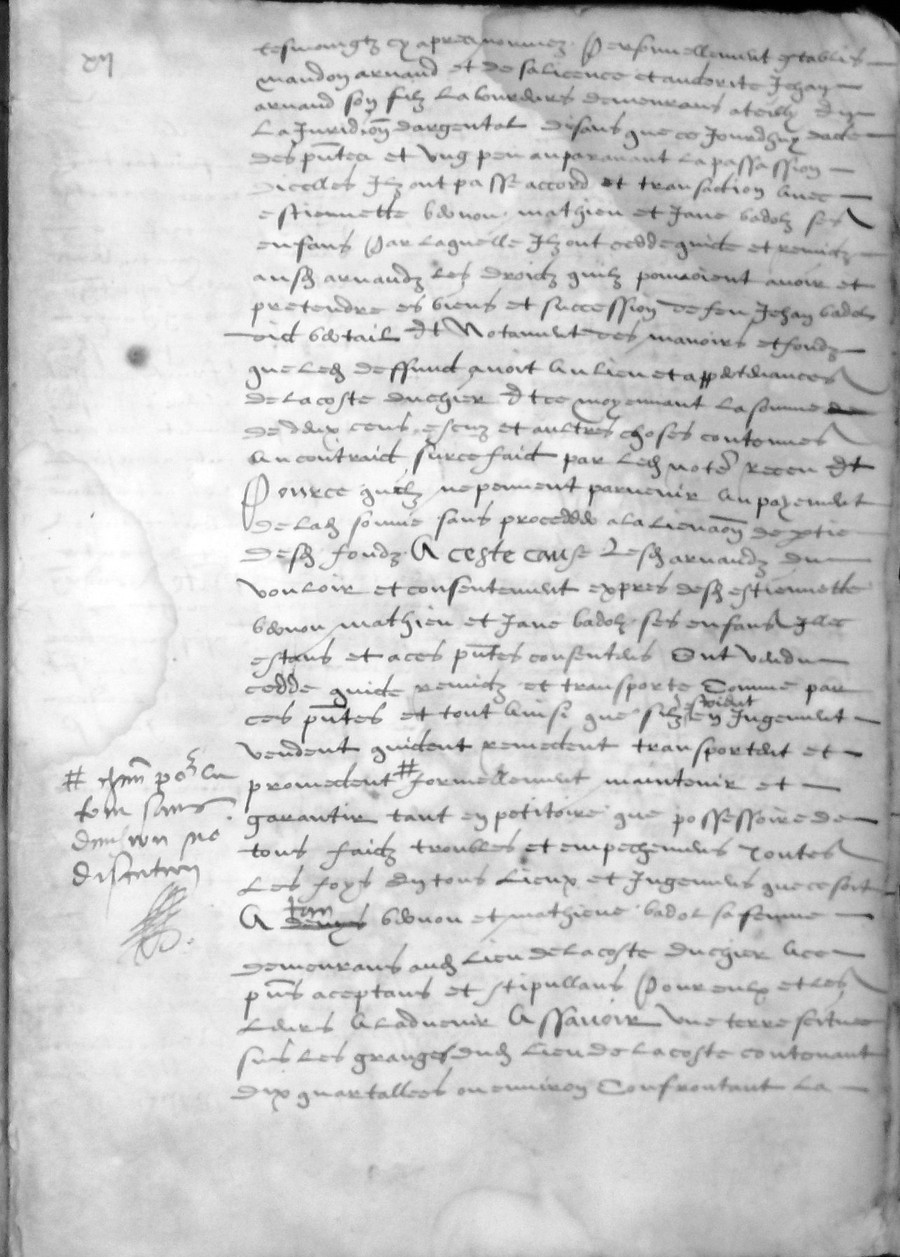 tesmoingtz cy apres nommez Personnellement establis
mandon arnaud et de sa licence et auctorite Jehan
arnaud son filz laboureurs demeurans a teilh en
la Juridion dargental disans que ce Jourdhuy dacte
des pntes et ung peu auparavant la passassion
dicelles Ilz ont passe accord et transaction avec
estiennette mathieu et Jane badolz ses
enfans Par laquelle Ilz ont cedde quicte et remidz
ausd arnaudz les droictz quilz pouvoient avoir et
pretendre es biens et succession de feu Jehan badol
dict et Notamment des manoirs et fondz
que led deffunct avoit au lieu et appertenances
de la coste duchier Et ce moyennant la somme de
de deux cens escuz et aultres choses contenues
au contraict surce faict par led note receu Et
Pource quilz ne peuvent parvenir au payement
de lad somme sans procedder a lalienaon de ptie
desd fondz A ceste cause Lesd arnaudz du
vouloir et consentement expres desd estiennette
mathieu et Jane badolz ses enfans Illec
estans et a ces pntes consentens Ont vendu
cedde quicte remidz et transporte Comme par
ces pntes et tout ainsi que silz estoient en Jugement
vendent quictent remectent transportent et
promectent # formellement maintenir et
garantir tant en petitoire que possessoire de
tous faictz troubles et empechemens toutes
les foys en tous lieux et Jugemens que ce soit
A et mathieue badol sa femme
demeurans aud lieu de la coste duchier ace
pns aceptans et stipullans Pour eulx et les
leurs a ladvenir Assavoir une terre scituee
sus les granges dud lieu de la coste contenant
dix quartallees ou environ Confrontant la
#
sans
division ne
discution